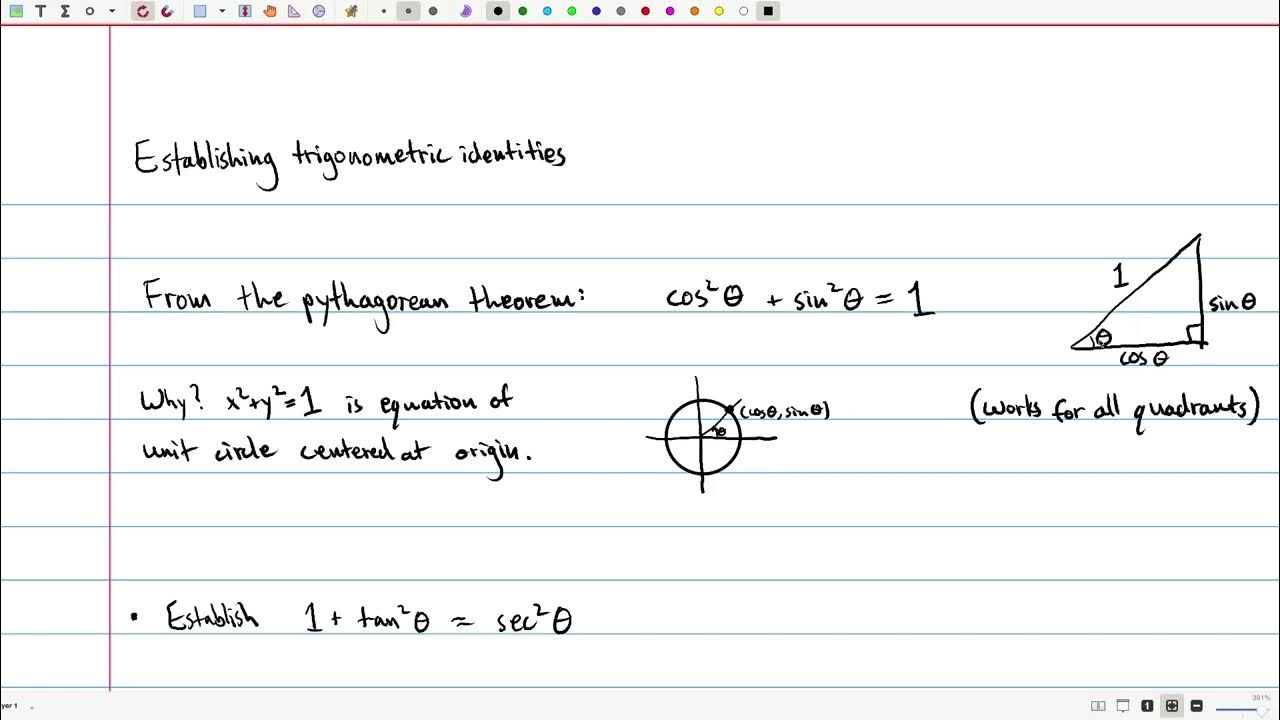 T Σ
Establishing trigonometric identities
From the pythagorean theorem: cos²θ + sin²θ = 1
1
sinθ
θ
cosθ
Why? x²+y²=1 is equation of
unit circle centered at origin.
(cosθ, sinθ)
θ
(works for all quadrants)
• Establish 1 + tan²θ = sec²θ
yer 1
1
391%